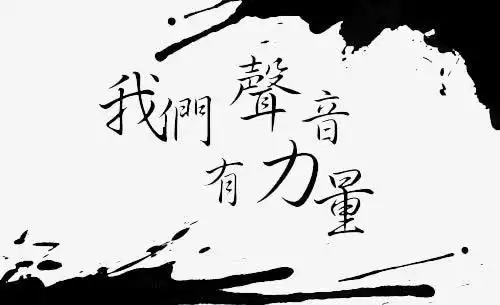 我們聲音
有力量